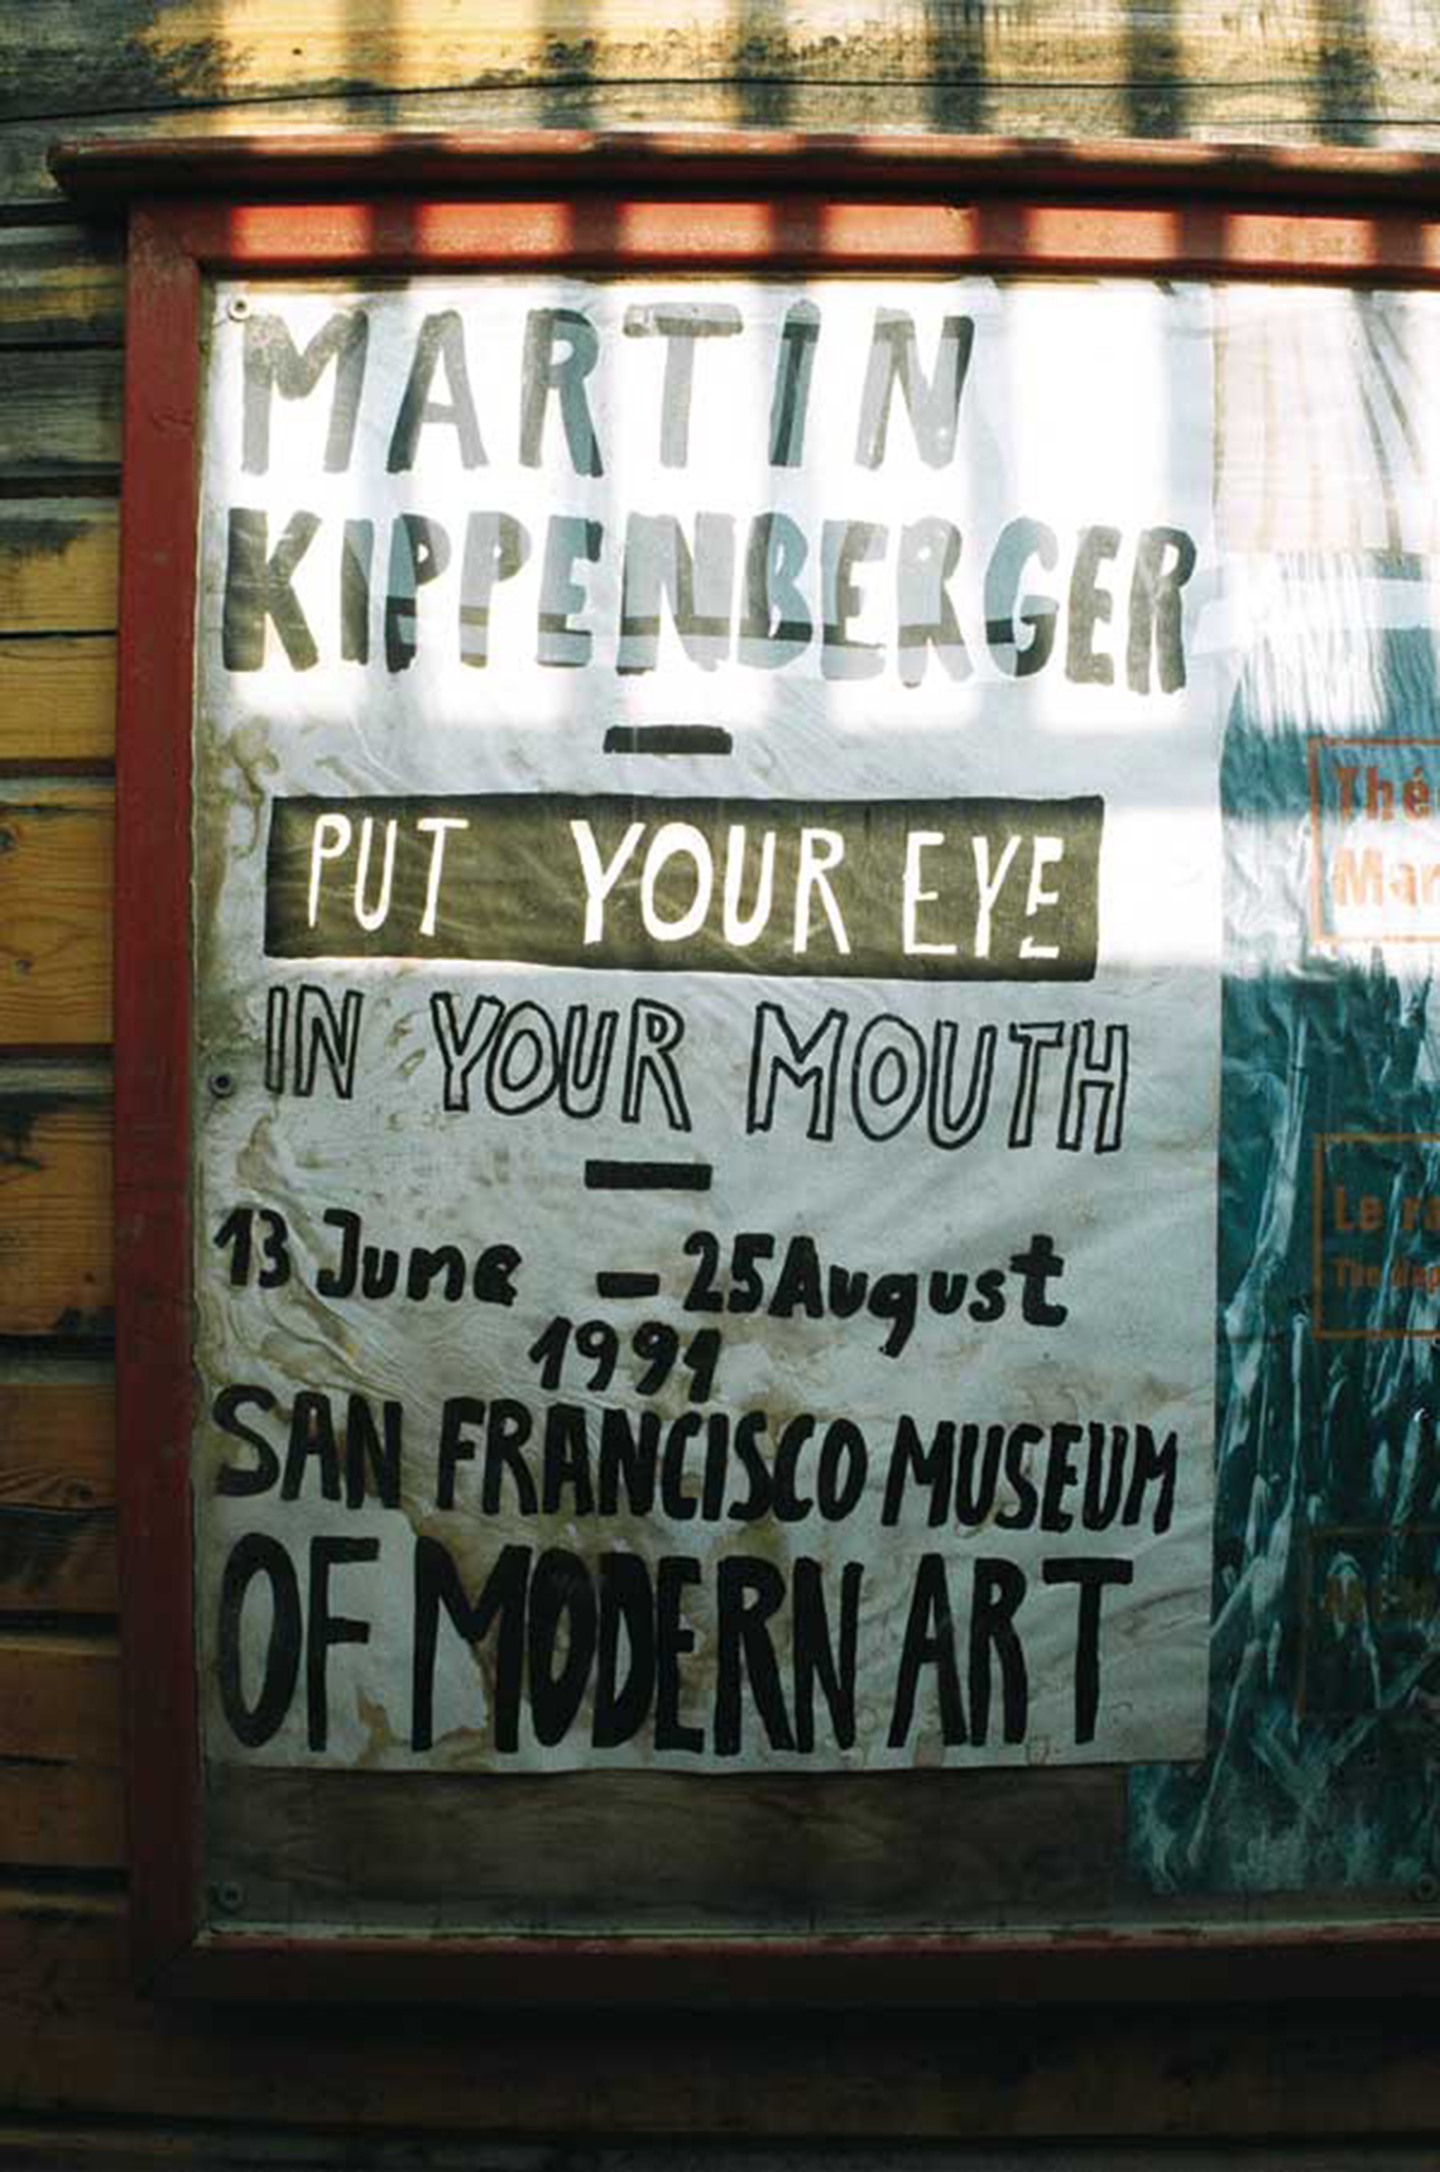 MARTIN
KIPPENBERGER
—
PUT YOUR EYE
IN YOUR MOUTH
—
13 June – 25 August
1991
SAN FRANCISCO MUSEUM
OF MODERN ART
Thé
Mar
Le r